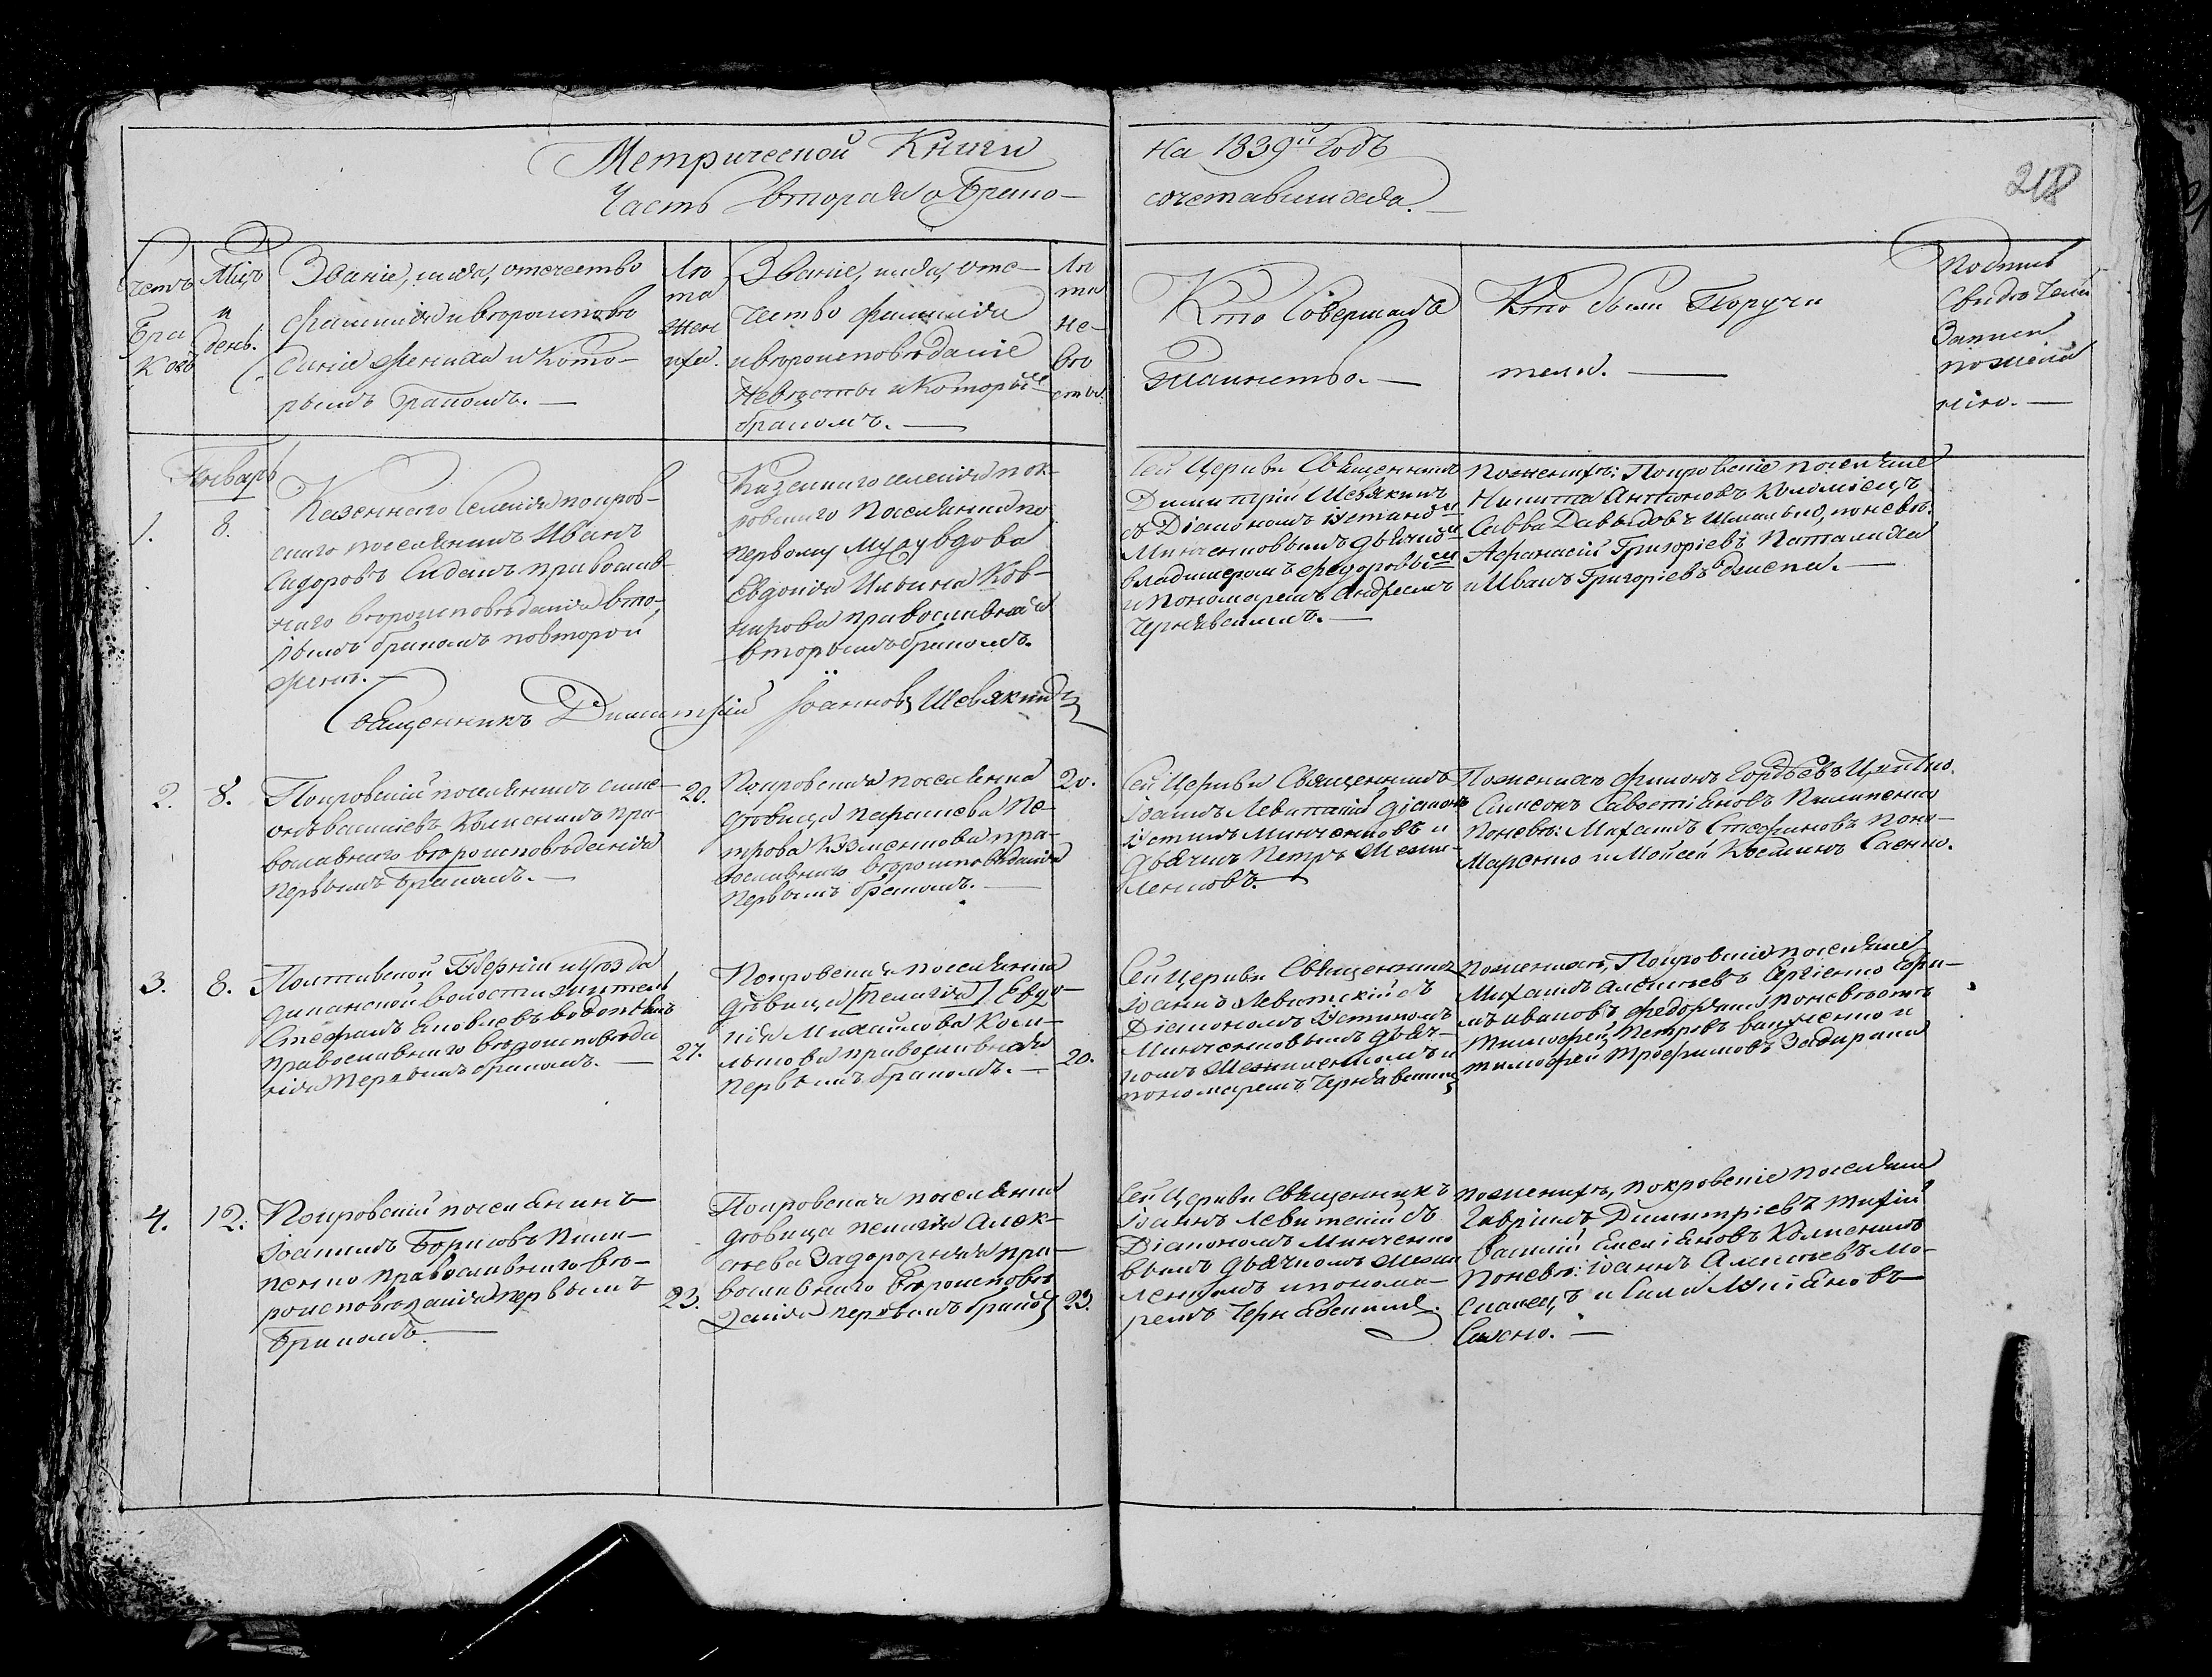 Метрической Книги на 1839й Годъ
Часть вторая о Брако-
сочетавшихся.
218
Счетъ
Бра
ковъ
Мцъ
и
день.
Званіе, имя, отечество
фамилія и вѣроисповѣ
даніе жениха и кото-
рымъ бракомъ.
Лѣ
та
жен
иха.
Званіе, имя, оте-
чество фамилія
и вѣроисповѣданіе
Невѣсты и которымъ
бракомъ.
Лѣ
та
не-
вѣ
сты.
Кто Совершалъ
Таинство.
Кто были Поручи
тели.
Подпись
свидѣтелей
Записи
по жела
нію.
Январь
1.
8.
Казеннаго Селенія покров-
скаго поселянинъ Иванъ
Сидоровъ православ-
наго вѣроисповѣданія вто-
рымъ бракомъ по второй
женѣ.
Казеннаго селенія пок-
ровскаго Поселянка по
первому мужу вдова
Евдокія Ильина
православная
вторымъ бракомъ.
Сей Церкви Священникъ
Димитрій Шевякинъ
съ Діакономъ Устиномъ
Минченковымъ дьячкомъ
владимеромъ федоровымъ
и Пономаремъ Андреемъ
Чернявскимъ.
По женихѣ: Покровскіе поселяне
Никита Антоновъ Коломіецъ
Савва Давыдовъ по невѣ:
Афанасій Григоріевъ
и Иванъ Григоріевъ
Священникъ Димитрій Іоанновъ Шевякинъ
2.
8.
Покровскій поселянинъ симе-
онъ васильевъ пра-
вославнаго вѣроисповѣданія
первымъ бракомъ.
20.
Покровская поселянка
дѣвица Параскева Пе-
трова пра-
вославнаго вѣроисповѣданія
первымъ бракомъ.
20.
Сей Церкви Священникъ
Іоаннъ Левитскій діаконъ
Устинъ Минченковъ и
дьячикъ Петръ
По женихѣ филипъ Гордѣевъ
Симеонъ Пилипенко
По невѣ: Михаилъ Стефановъ Поно-
маренко и Мойсей Косминъ Саенко.
3.
8.
Полтавской Губерніи и уѣзда
диканской волости житель
Стефанъ Яковлевъ
православнаго вѣроисповѣда
нія первымъ бракомъ.
27.
Покровская поселянка
дѣвица [Пелагія] Евдо-
кія Михайлова
православная
первымъ бракомъ.
20.
Сей Церкви Священникъ
Іоаннъ Левитскій съ
Діакономъ Устиномъ
Минченковымъ дьяч-
комъ и
пономаремъ Чернявскимъ
По женихѣ, Покровскіе поселяне
Михаилъ Алексѣевъ Сергіенко Ефи-
мъ ивановъ по невѣстѣ
тимофей Петровъ и
тимофей Трофимовъ Задирака
4.
12.
Покровскій поселянинъ
Іоаннъ Борисовъ Пили-
пенко православнаго вѣ-
роисповѣданія первымъ
бракомъ.
23.
Покровская поселянка
дѣвица пелагія Алек-
сѣева Задорожняя пра-
вославнаго вѣроисповѣ
данія первымъ бракомъ
23.
Сей Церкви Священникъ
Іоаннъ Левитскій съ
Діакономъ Минченко
вымъ дьячкомъ
и понома-
ремъ Чернявскимъ.
По женихѣ, покровскіе поселяне
Гавріилъ Димитріевъ тихій
Василій Емельяновъ
По невѣ: Іоаннъ Алексѣевъ Мо-
скалецъ и
Сахно.